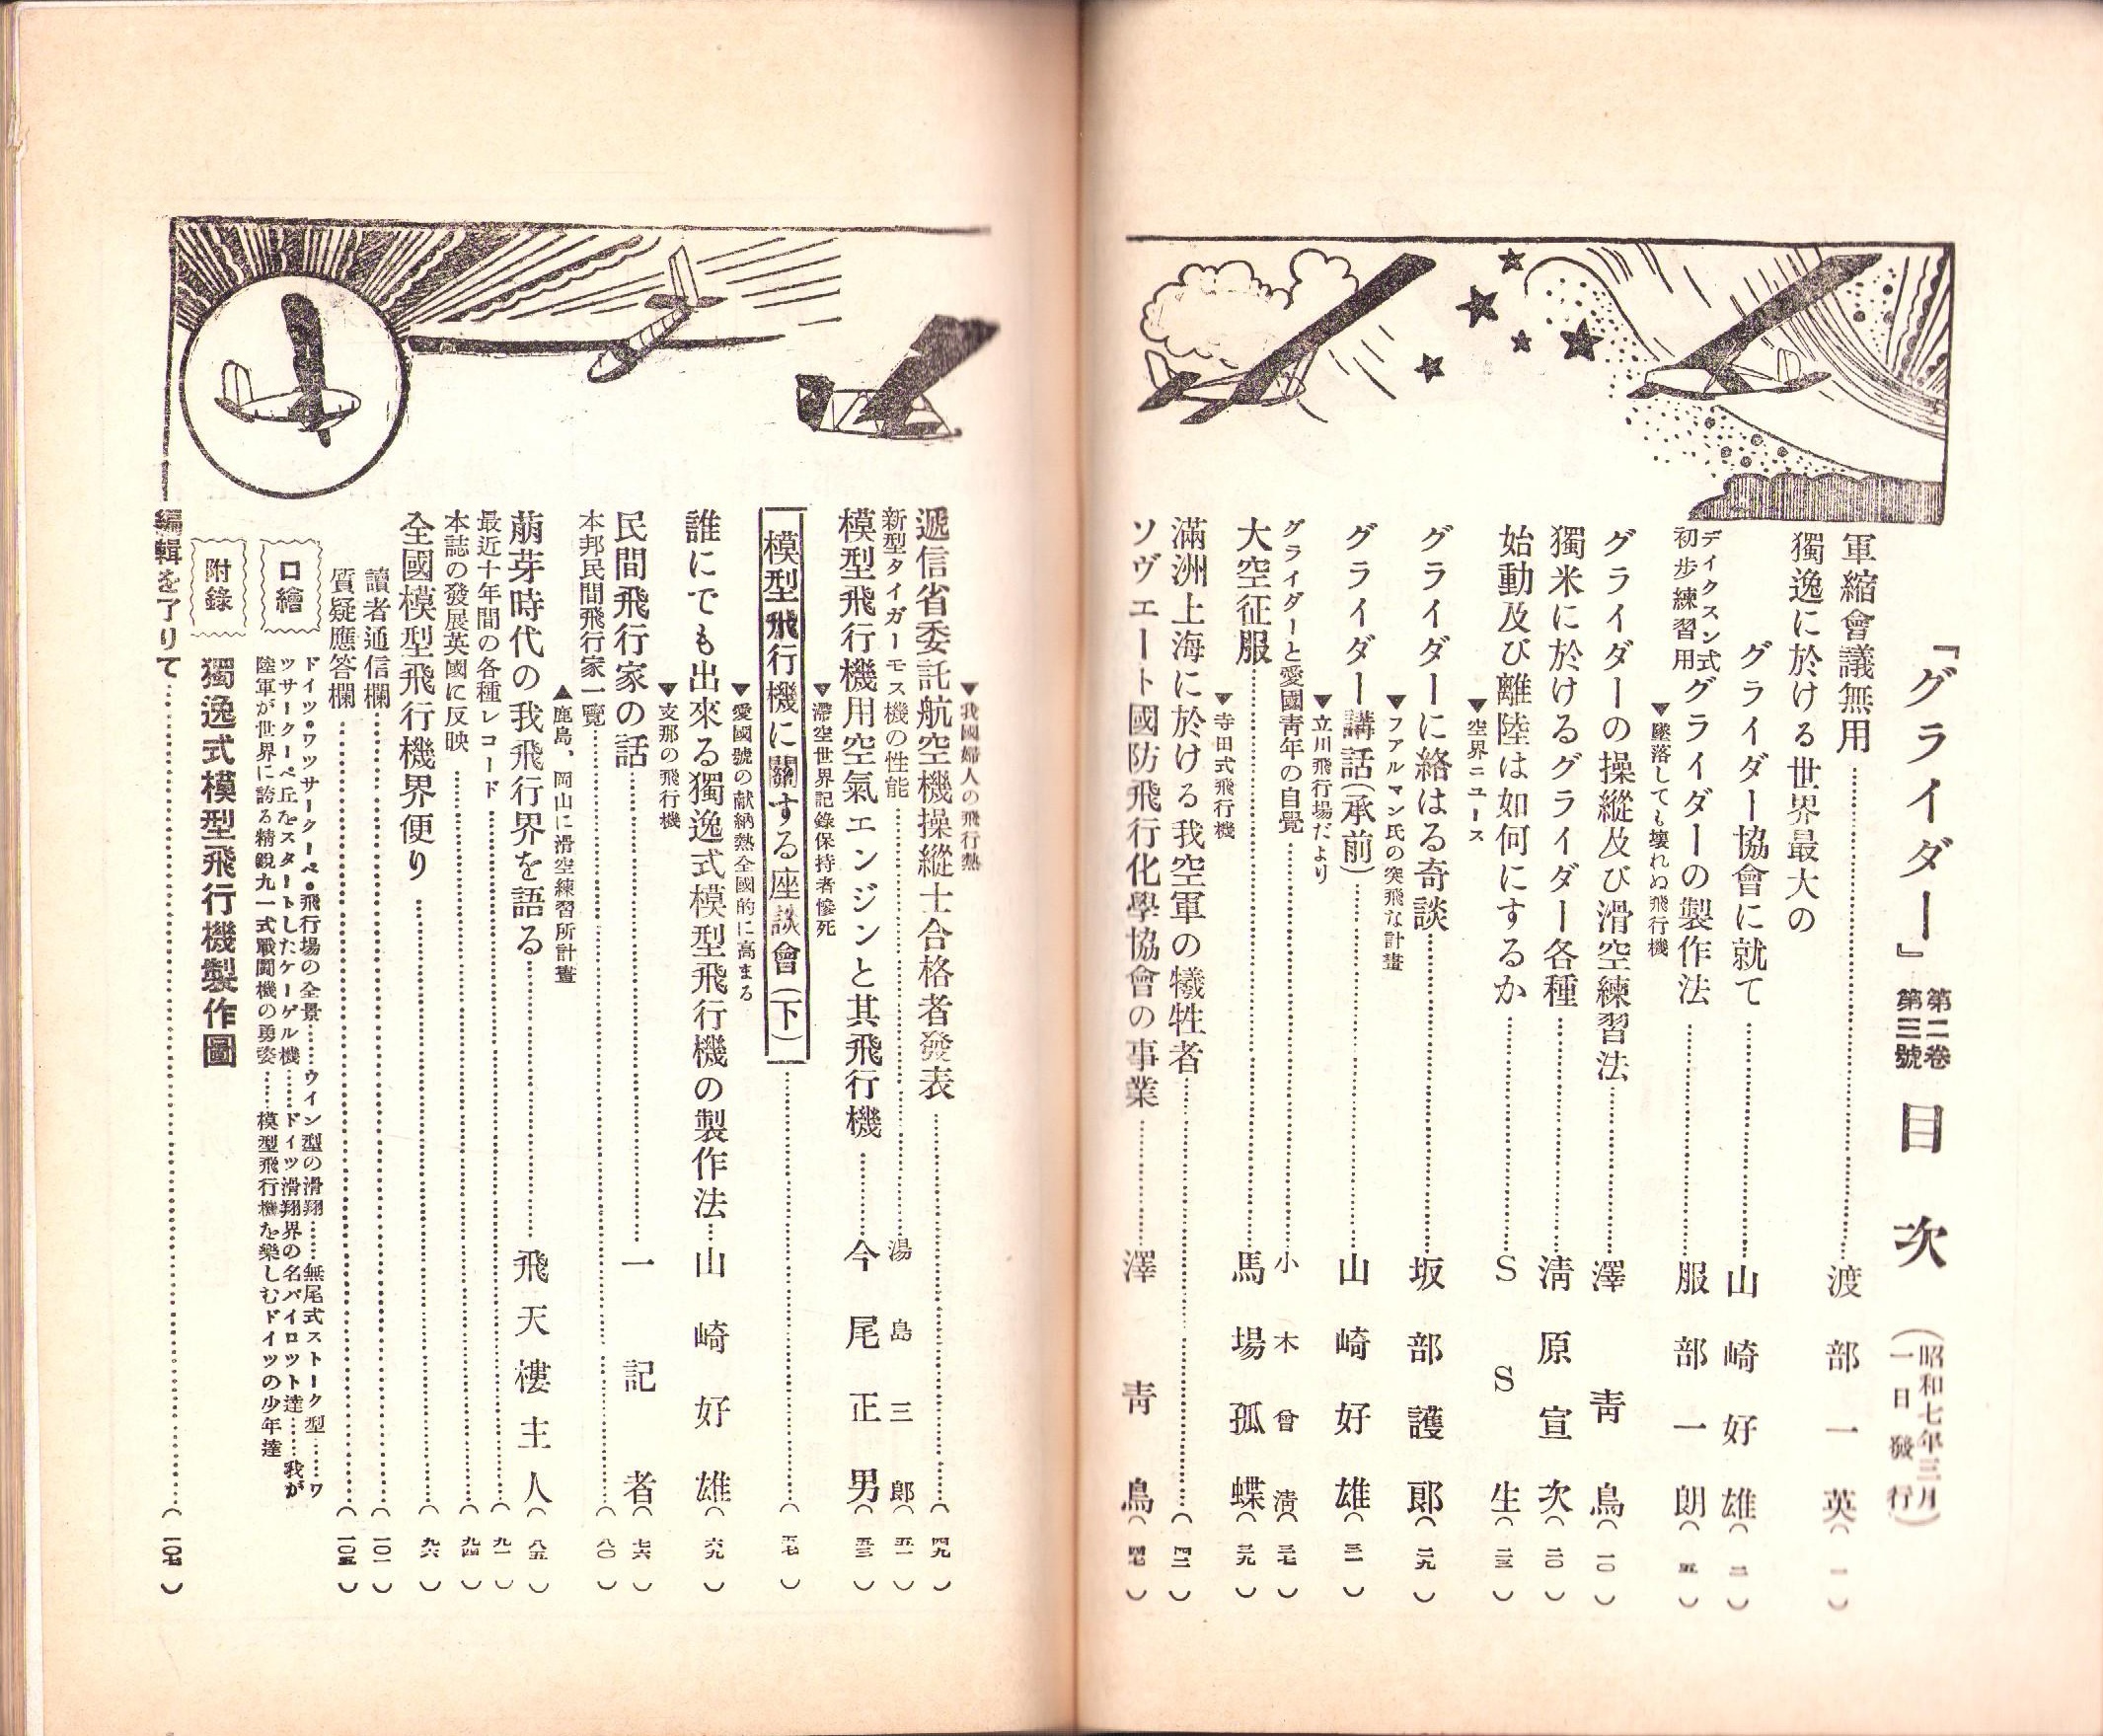 『グライダー』第二卷第三號 目次（昭和七年三月一日發行）
軍縮會議無用……渡部一英（一）
獨逸に於ける世界最大の
グライダー協會に就て……山崎好雄（二）
デイクスン式初步練習用グライダーの製作法……服部一朗（五）
▼墜落しても壞れぬ飛行機
グライダーの操縱及び滑空練習法……澤靑鳥（一〇）
獨米に於けるグライダー各種……淸原宣次（二〇）
始動及び離陸は如何にするか……SS生（二三）
▼空界ニュース
グライダーに絡はる奇談……坂部護郞（二九）
▼フアルマン氏の突飛な計畫
グライダー講話（承前）……山崎好雄（三一）
▼立川飛行場だより
グライダーと愛國靑年の自覺……小木曾淸（三七）
大空征服……馬場孤蝶（三九）
▼寺田式飛行機
滿洲上海に於ける我空軍の犧牲者……（四二）
ソヴエート國防飛行化學協會の事業……澤靑鳥（四七）
▼我國婦人の飛行熱
遞信省委託航空機操縱士合格者發表……（四九）
新型タイガーモス機の性能……湯島三郞（五一）
模型飛行機用空氣エンジンと其飛行機……今尾正男（五三）
▼滯空世界記錄保持者慘死
模型飛行機に關する座談會（下）……（五七）
▼愛國號の献納熱全國的に高まる
誰にでも出來る獨逸式模型飛行機の製作法…山崎好雄（六九）
▼支那の飛行機
民間飛行家の話……一記者（七六）
本邦民間飛行家一覽……（八〇）
▲鹿島、岡山に滑空練習所計畫
萠芽時代の我飛行界を語る……飛天樓主人（八五）
最近十年間の各種レコード……（九一）
本誌の發展英國に反映……（九四）
全國模型飛行機界便り……（九六）
讀者通信欄……（一〇一）
質疑應答欄……（一〇五）
口繪
ドイツ・ワツサークーペ・飛行場の全景……ウイン型の滑翔……無尾式ストーク型……ワ
ツサークーペ丘をスタートしたケーゲル機……ドイツ滑翔界の名パイロツト達……我が
陸軍が世界に誇る精銳九一式戰鬪機の勇姿……模型飛行機を樂しむドイツの少年達
附錄
獨逸式模型飛行機製作圖
編輯を了りて……（一〇七）